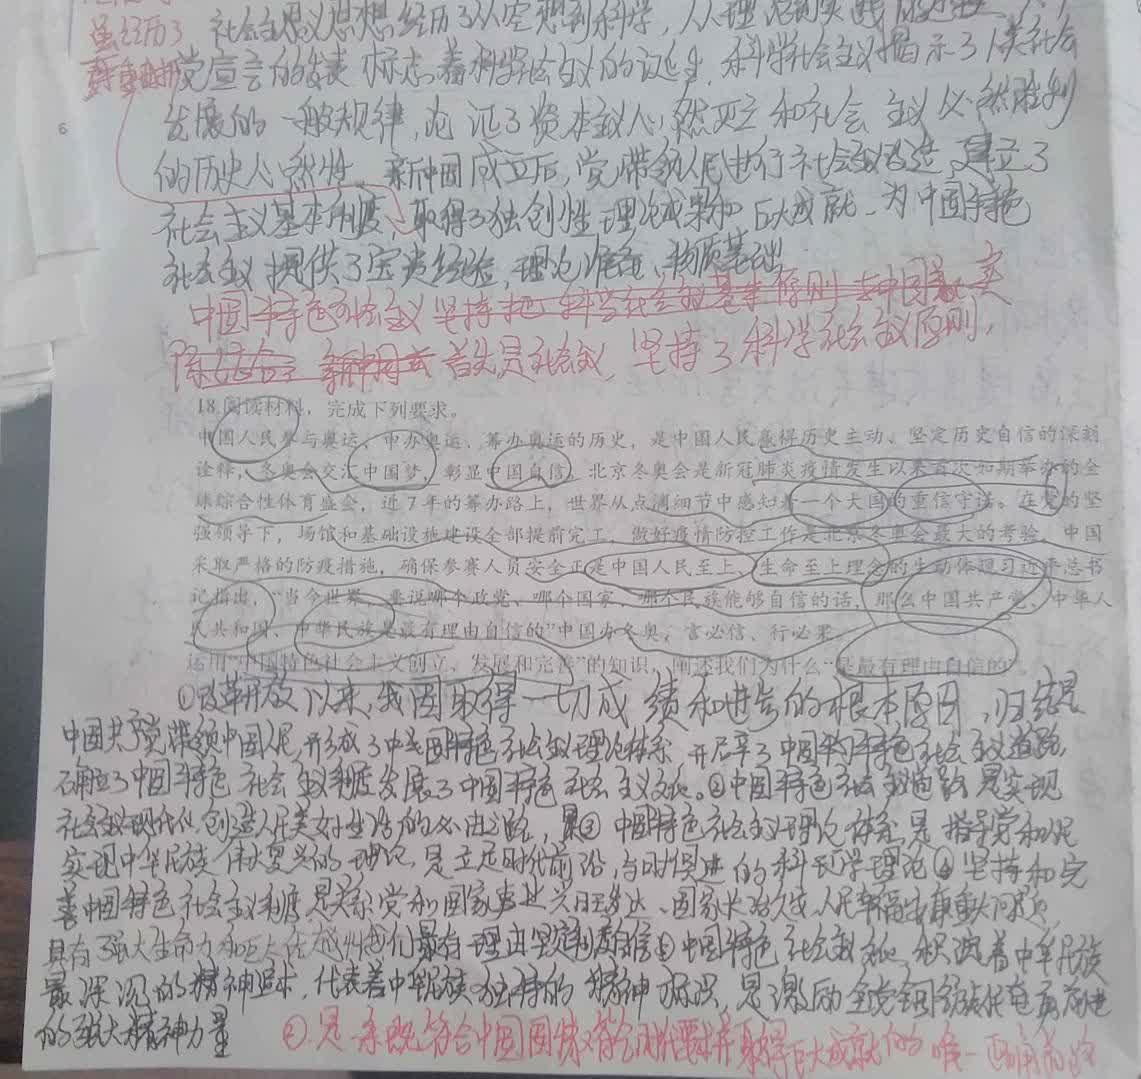 虽经历了
社会主义思想经历了从空想到科学,从理论到实践
党宣言的发表标志着科学社会主义的诞生,科学社会主义揭示了人类社会
发展的一般规律,论证了资本主义必然灭亡和社会主义必然胜利
的历史必然性 新中国成立后,党带领人民进行社会主义改造,建立了
社会主义基本制度,取得了独创性理论成果和巨大成就,为中国特色
社会主义提供了宝贵经验,理论准备、物质基础
中国特色社会主义坚持把科学社会主义基本原则与中国实
际结合 新中国成 首先是社会主义,坚持了科学社会主义原则,
6
18.阅读材料,完成下列要求。
中国人民参与奥运、申办奥运、筹办奥运的历史,是中国人民赢得历史主动、坚定历史自信的深刻
诠释,冬奥会交汇中国梦,彰显中国自信。北京冬奥会是新冠肺炎疫情发生以来首次如期举办的全
球综合性体育盛会,近7年的筹办路上,世界从点滴细节中感知着一个大国的重信守诺。在党的坚
强领导下,场馆和基础设施建设全部提前完工,做好疫情防控工作是北京冬奥会最大的考验,中国
采取严格的防疫措施,确保参赛人员安全正是中国人民至上、生命至上理念的生动体现习近平总书
记指出,“当今世界,要说哪个政党、哪个国家、哪个民族能够自信的话,那么中国共产党、中华人
民共和国、中华民族是最有理由自信的”中国办冬奥,言必信、行必果。
运用“中国特色社会主义创立、发展和完善”的知识,阐述我们为什么“是最有理由自信的”。
①改革开放以来,我国取得一切成绩和进步的根本原因,归结是
中国共产党带领中国人民,形成了中国特色社会主义理论体系 开辟了中国特色社会主义道路
确立了中国特色社会主义制度发展了中国特色社会主义文化。②中国特色社会主义道路是实现
社会主义现代化,创造人民美好生活的必由之路,③中国特色社会主义理论体系是指导党和人民
实现中华民族伟大复兴的理论,是立足时代前沿,与时俱进的科学理论④坚持和完
善中国特色社会主义制度是关系党和国家事业兴旺发达、国家长治久安、人民幸福安康重大问题,
具有强大生命力和巨大优越性我们最有理由坚定制度自信⑤中国特色社会主义文化积淀着中华民族
最深沉的精神追求,代表着中华民族独特的精神标识,是激励全党全国各族人民奋勇前进
的强大精神力量
②是一条既符合中国国情又符合时代要求并取得巨大成就的唯一正确道路